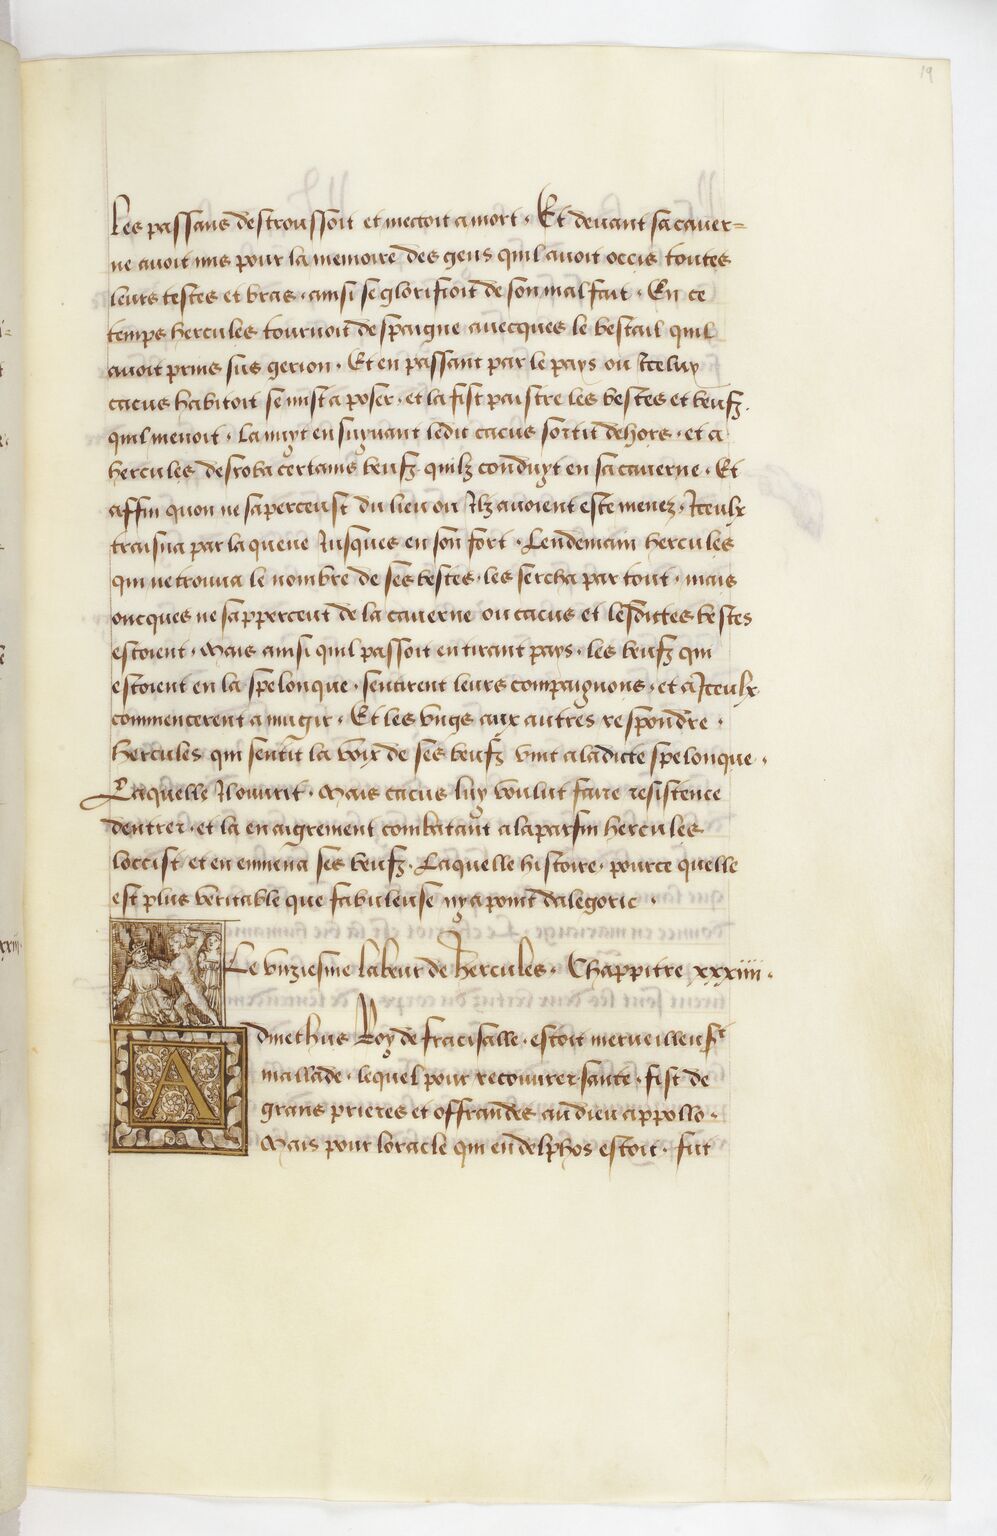 19
Les passans destroussoit et mectoit a mort . Et devant sa caver=
ne avoit mis pour la memoire des gens quil avoit occis toutes
leurs testes et bras . ainsi se glorifioit de son malfait . En ce
temps hercules tournoit despaigne avecques le bestail quil
avoit prins sus gerion . Et en passant par le pays ou Iceluy
cacus habitoit se mist a poser . et la fist paistre les bestes et beufz .
quil menoit . La nuyt ensuyvant ledit cacus sortit dehors . et a
hercules desroba certains beufz quilz conduyt en sa caverne . Et
affin quon ne saperceust du lieu ou Ilz avoient este menez . Iceulx
traisna par la queue Jusques en son fort . Lendemain hercules
qui ne trouva le nombre de ses bestes . les sercha par tout . mais
oncques ne sapperceut de la caverne ou cacus et lesdittes bestes
estoient . Mais ainsi quil passoit en tirant pays . les beufz qui
estoient en la spelonque . sentirent leurs compaignons . et a Iceulx
commencerent a mugir . Et les ungs aux autres respondre .
Hercules qui sentit la voix de ses beufz vint a ladicte spelonque .
Laquelle Il ouvrit . Mais cacus luy voulut faire resistence
dentrer . et la en aigrement combatant a la parfin hercules
loccist et en emmena ses beufz . Laquelle histoire . pource quelle
est plus veritable que fabuleuse ny a point dalegorie .
Le unziesme labeur de hercules . Chappitre xxxiiii .
Admethus Roy de fracisalle . estoit merveilleusemt
mallade . lequel pour recouvrer sante . fist de
grans prieres et offrandes au dieu appollo .
Mais pour loracle qui en delphos estoit . fut